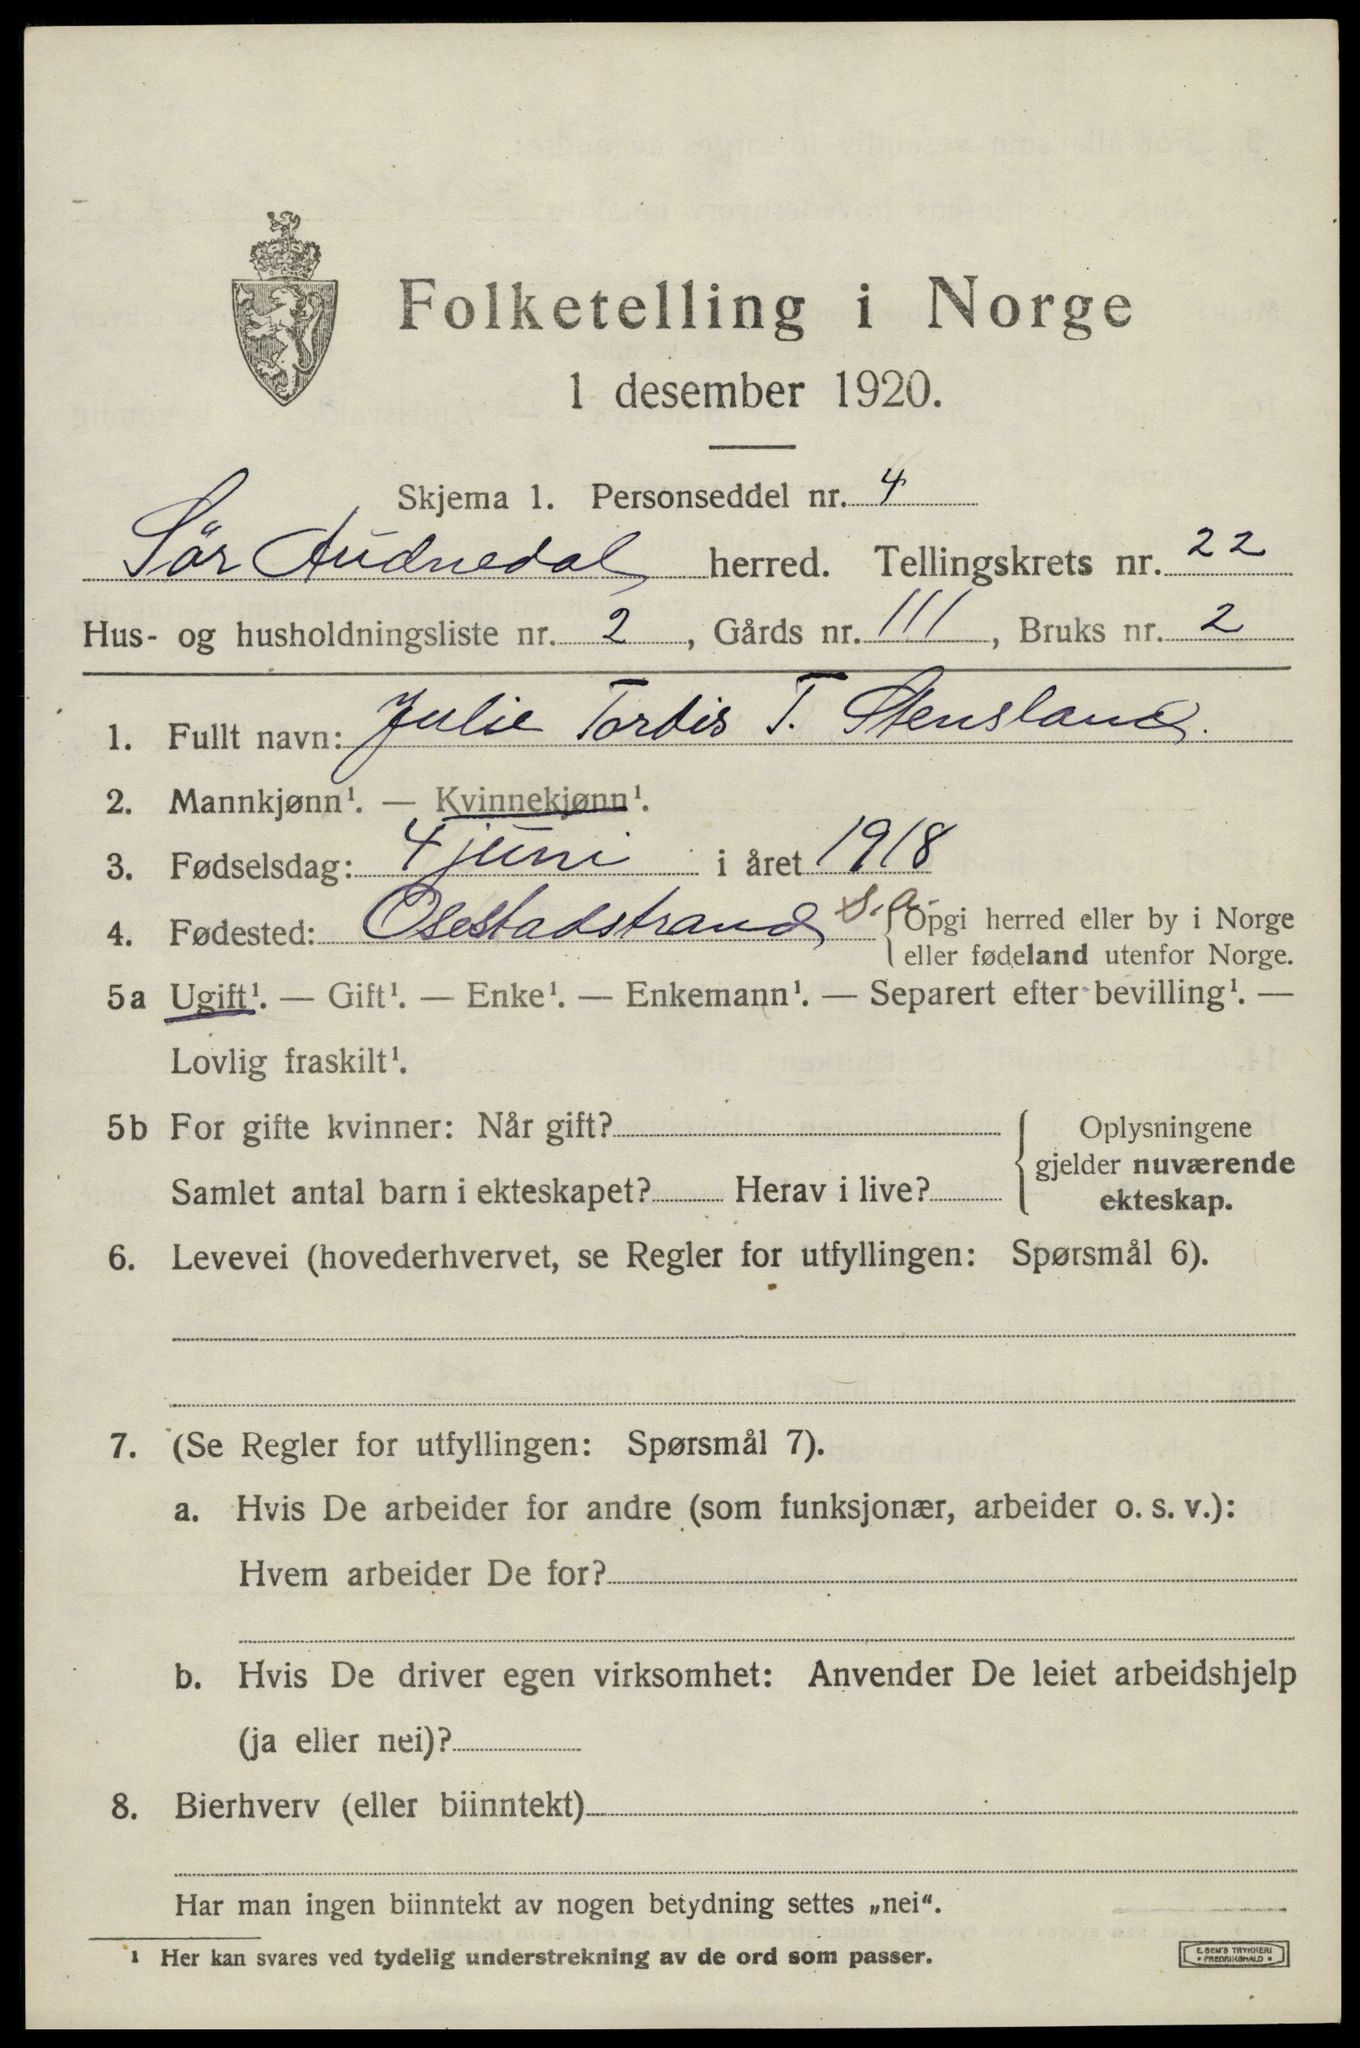 Folketelling i Norge
1 desember 1920.
Skjema 1. Personseddel nr. 4
Sör Audnedal herred. Tellingskrets nr. 22
Hus- og husholdningsliste nr. 2, Gårds nr. 111, Bruks nr. 2
1. Fullt navn: Julie Tordis T. Stensland.
2. Mannkjønn¹. — Kvinnekjønn¹.
3. Fødselsdag: 4 juni i året 1918
4. Fødested: Osestadstrand S.A. {Opgi herred eller by i Norge
eller fødeland utenfor Norge.
5a Ugift¹. — Gift¹. — Enke¹. — Enkemann¹. — Separert efter bevilling¹. —
Lovlig fraskilt¹.
5b For gifte kvinner: Når gift?
Samlet antal barn i ekteskapet? Herav i live?
{Oplysningene
gjelder nuværende
ekteskap.
6. Levevei (hovederhvervet, se Regler for utfyllingen: Spørsmål 6).
7. (Se Regler for utfyllingen: Spørsmål 7).
a. Hvis De arbeider for andre (som funksjonær, arbeider o. s. v.):
Hvem arbeider De for?
b. Hvis De driver egen virksomhet: Anvender De leiet arbeidshjelp
(ja eller nei)?
8. Bierhverv (eller biinntekt)
Har man ingen biinntekt av nogen betydning settes „nei“.
¹ Her kan svares ved tydelig understrekning av de ord som passer.
E. SEM'S TRYKKERI
* FREDRIKSHALD *